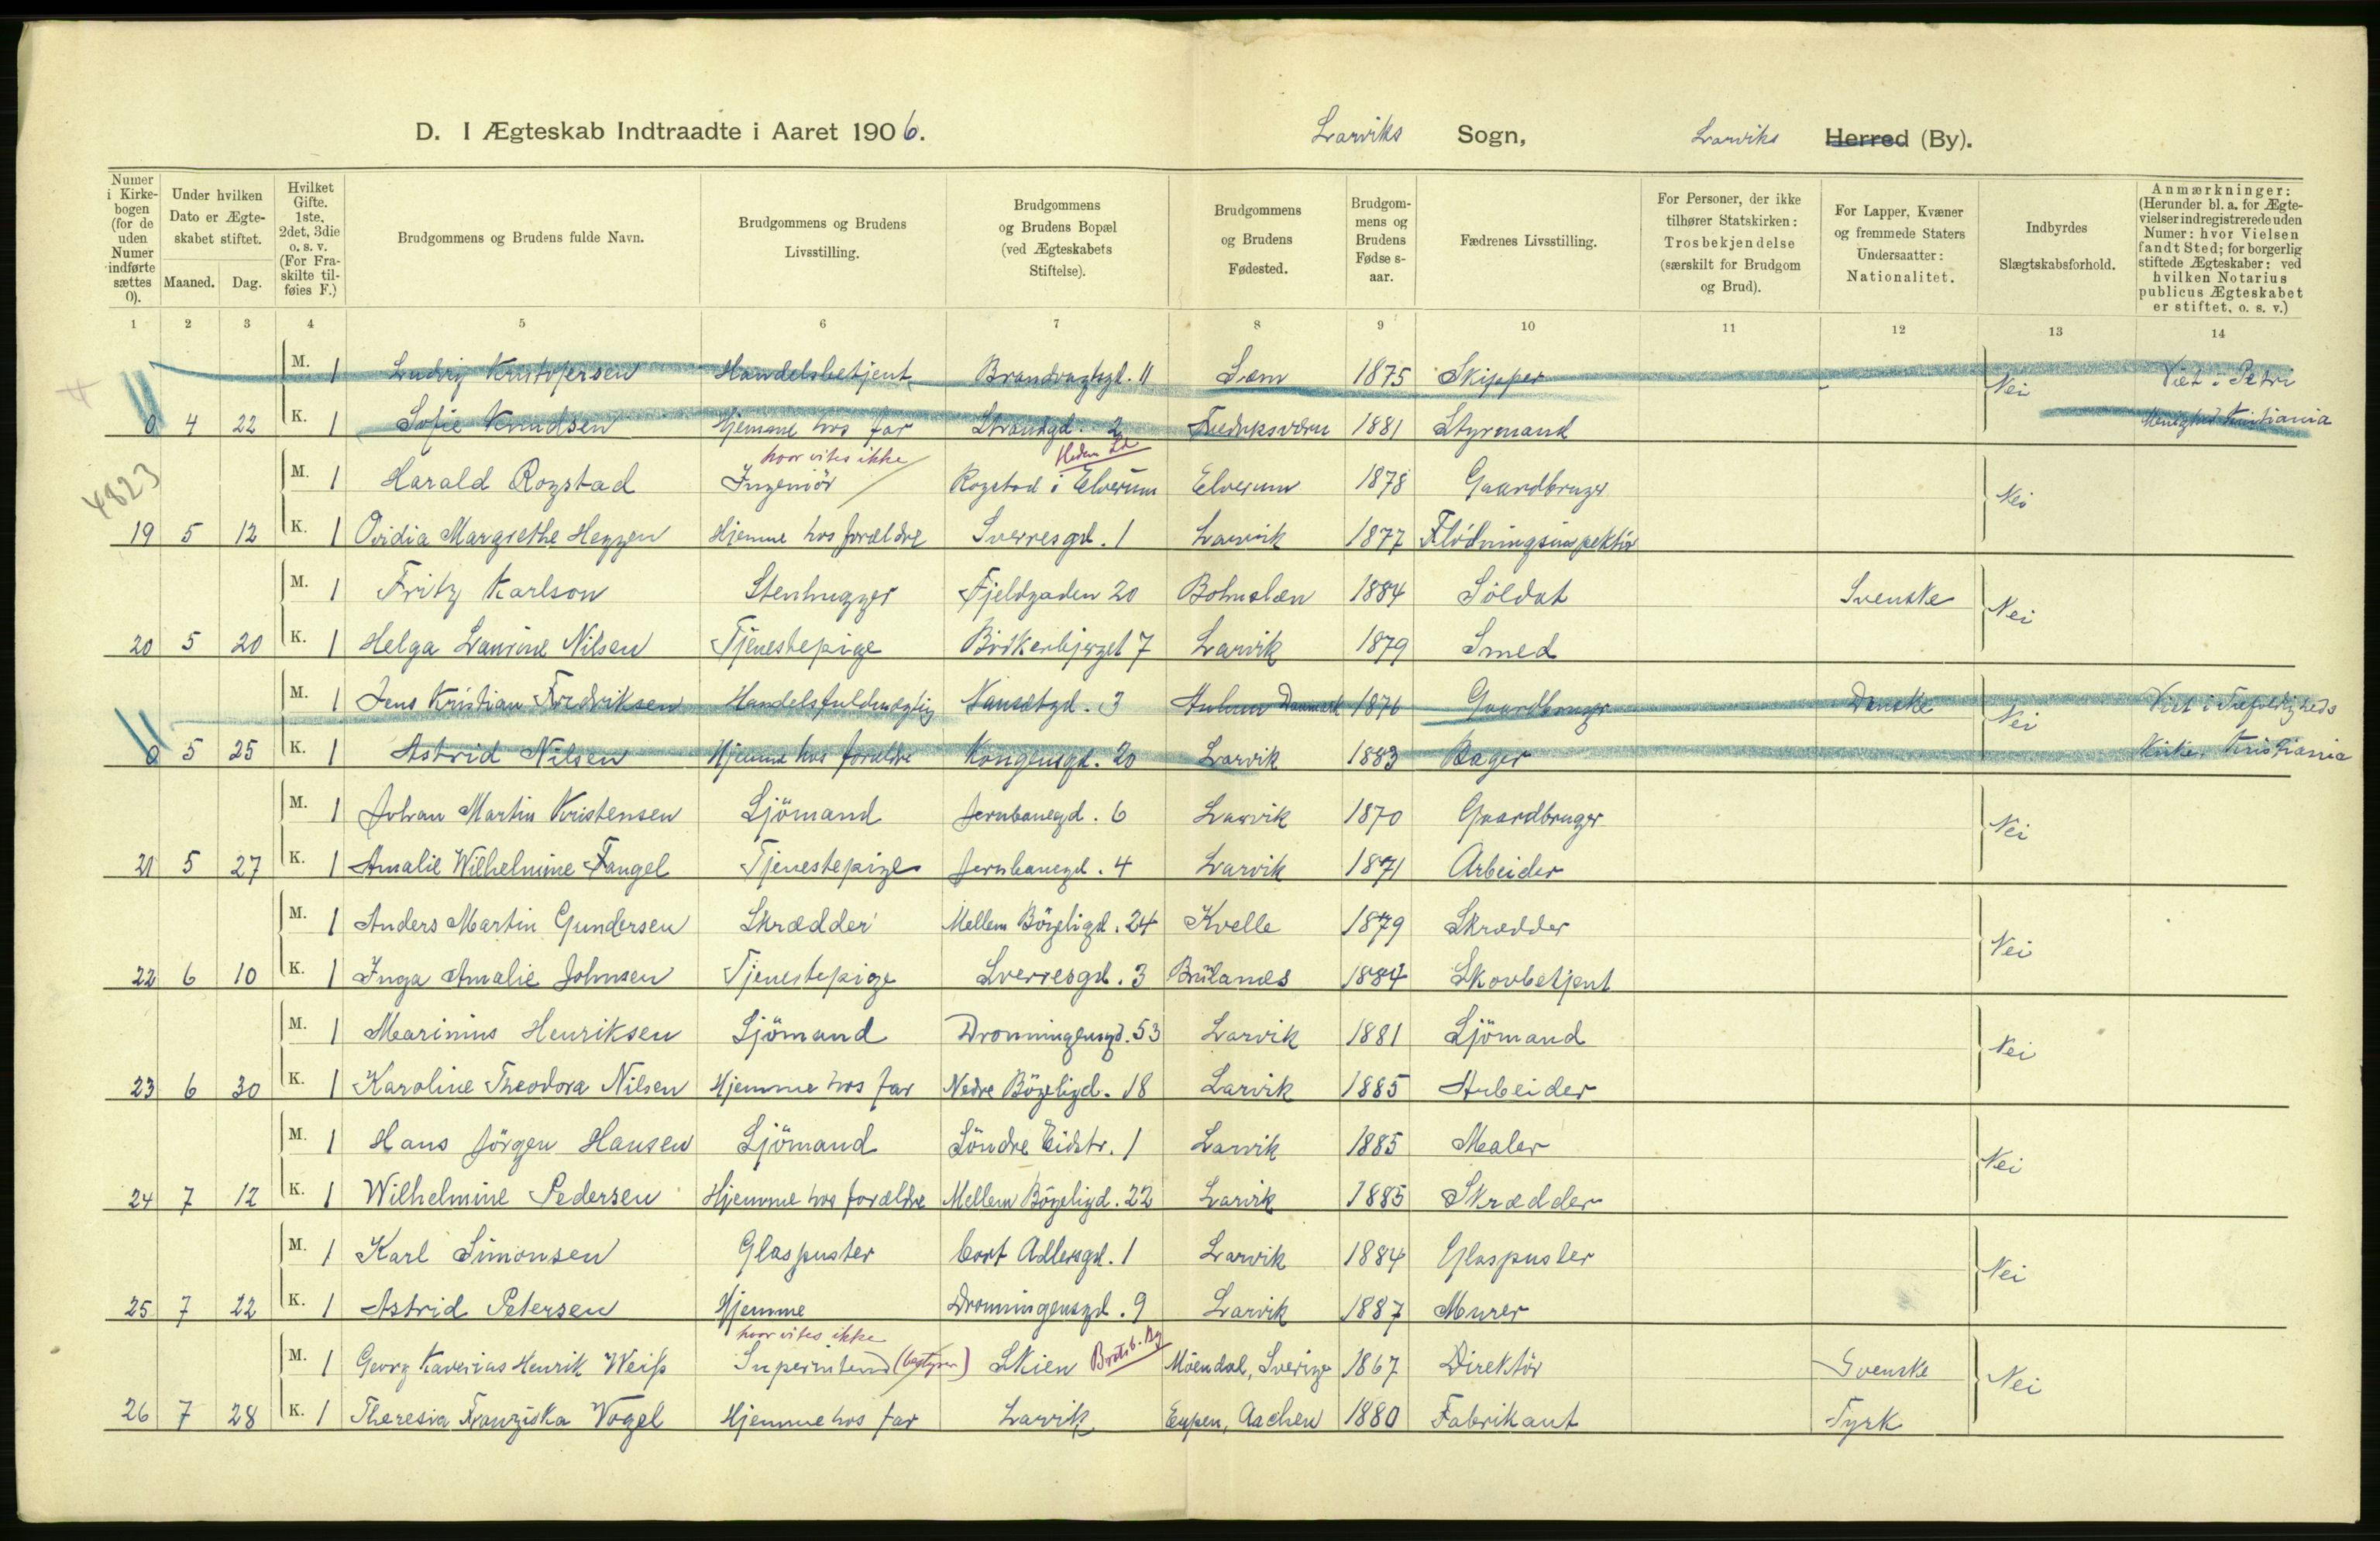 D. I Ægteskab Indtraadte i Aaret 1906. Larviks Sogn, Larviks Herred (By).
Numer i Kirkebogen (for de uden Numer indførte sættes 0). Under hvilken Dato er Ægteskabet stiftet. Maaned. Dag. Hvilket Gifte. 1ste, 2det, 3die o. s. v. (For Fraskilte tilføies F.) Brudgommens og Brudens fulde Navn. Brudgommens og Brudens Livsstilling. Brudgommens og Brudens Bopæl (ved Ægteskabets Stiftelse). Brudgommens og Brudens Fødested. Brudgommens og Brudens Fødselsaar. Fædrenes Livsstilling. For Personer, der ikke tilhører Statskirken: Trosbekjendelse (særskilt for Brudgom og Brud). For Lapper, Kvæner og fremmede Staters Undersaatter: Nationalitet. Indbyrdes Slægtskabsforhold. Anmærkninger: (Herunder bl. a. for Ægtevielser indregistrerede uden Numer: hvor Vielsen fandt Sted; for borgerlig stiftede Ægteskaber: ved hvilken Notarius publicus Ægteskabet er stiftet, o. s. v.)
1 2 3 4 5 6 7 8 9 10 11 12 13 14
M. 1 Ludvig Kristofersen Handelsbetjent Brandvagtgd. 11 Sem 1875 Skipper Nei Viet i Petri
0 4 22 K. 1 Sofie Knudsen Hjemme hos far Strandgd. 2 Fredriksværn 1881 Styrmand Menighed Kristiania
hvor vites ikke
4823 M. 1 Harald Rogstad Ingeniör Rogstad i Elverum Elverum 1878 Gaardbruger Nei
19 5 12 K. 1 Ovidia Margrethe Heyzen Hjemme hos forældre Sverresgd. 1 Larvik 1877 Flödningsinspektör
M. 1 Fritz Karlson Stenhugger Fjeldgaden 20 Bohuslen 1884 Soldat Svenske Nei
20 5 20 K. 1 Helga Laurine Nilsen Tjenestepige Bökerbjerget 7 Larvik 1879 Smed
M. 1 Jens Kristian Fredriksen Handelsfuldmægtig Nansetgd. 3 Danmark 1876 Gaardbruger Danske Nei Viet i Trefoldigheds
0 5 25 K. 1 Astrid Nilsen Hjemme hos forældre Kongensgd. 20 Larvik 1883 Bager Kirke Kristiania
M. 1 Johan Martin Kristensen Sjömand Jernbanegd. 6 Larvik 1870 Gaardbruger Nei
21 5 27 K. 1 Amalie Wilhelmine Fangel Tjenestepige Jernbanegd. 4 Larvik 1871 Arbeider
M. 1 Anders Martin Gundersen Skrædder Mellem Bögeligd. 24 Kvelle 1879 Skrædder Nei
22 6 10 K. 1 Inga Amalie Johnsen Tjenestepige Sverresgd. 3 Brülanes 1884 Skovbetjent
M. 1 Marinius Henriksen Sjömand Dronningensgd. 53 Larvik 1881 Sjömand Nei
23 6 30 K. 1 Karoline Theodora Nilsen Hjemme hos far Nedre Bögeligd. 18 Larvik 1885 Arbeider
M. 1 Hans Jörgen Hansen Sjömand Söndre Eidstr. 1 Larvik 1885 Maler Nei
24 7 12 K. 1 Wilhelmine Pedersen Hjemme hos forældre Mellem Bögeligd. 22 Larvik 1885 Skrædder
M. 1 Karl Simonsen Glaspuster Cort Adlersgd. 1 Larvik 1884 Glaspuster Nei
25 7 22 K. 1 Astrid Petersen Hjemme Dronningensgd. 9 Larvik 1887 Murer
hvor vites ikke
M. 1 Georg Kaverius Henrik Weiss Superintend (bestyrer) Skien Bratsb. By Möendal, Sverige 1867 Direktör Svenske Nei
26 7 28 K. 1 Theresia Franziska Vogel Hjemme hos far Larvik Eupen, Aachen 1880 Fabrikant Tysk